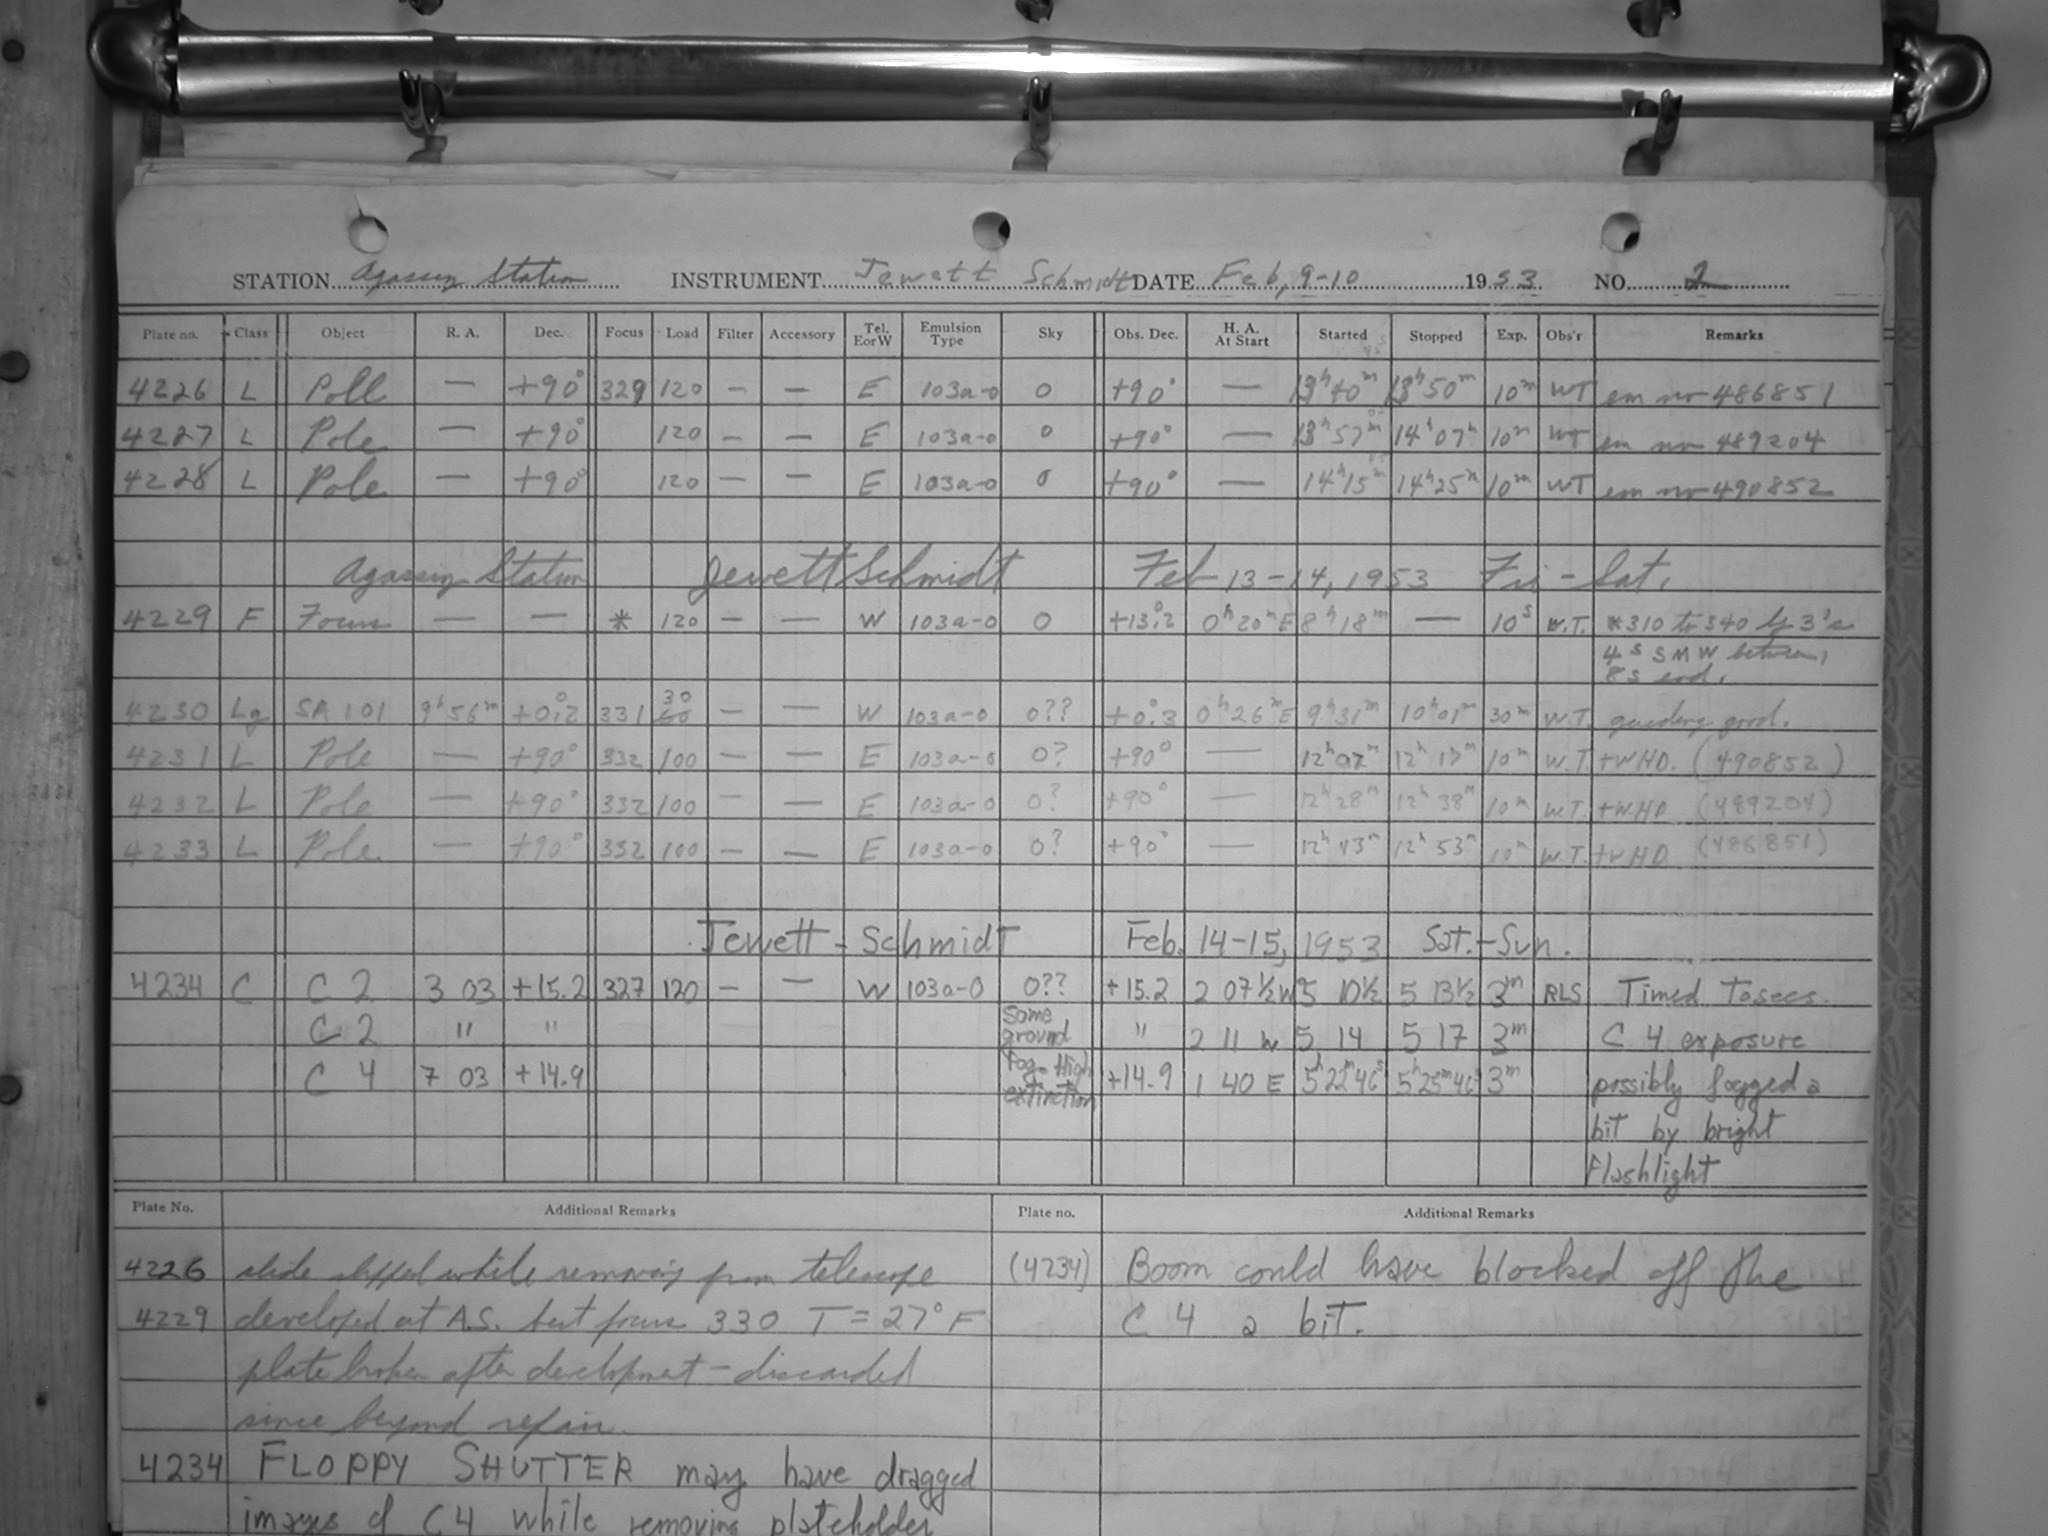 STATION Agassiz Station INSTRUMENT Jewett Schmidt DATE Feb, 9-10 1953 NO. 2
Plate no. Class Object R. A. Dec. Focus Load Filter Accessory Tel. E or W Emulsion Type Sky Obs. Dec. H. A. At Start Started Stopped Exp. Obs'r Remarks
4226 L Pole — +90° 329 120 — — E 103a-0 0 +90° — 13h 40m 13h 50m 10m WT em no 486851
4227 L Pole — +90° 120 — — E 103a-0 0 +90° — 13h 57m 14h 07m 10m WT em no 489204
4228 L Pole — +90° 120 — — E 103a-0 0 +90° — 14h 15m 14h 25m 10m WT em no 490852
Agassiz Station Jewett Schmidt Feb 13-14, 1953 Fri - Sat.
4229 F Focus — — * 120 — — W 103a-0 0 +13.°2 0h 20m E 8h 18m — 10s W.T. *310 to 340 by 3's
4s SMW between,
8s end.
4230 Lg SA 101 9h 56m +0.°2 331 30 60 — — W 103a-0 0?? +0.°3 0h 26m E 9h 31m 10h 01m 30m W.T. guiding good.
4231 L Pole — +90° 332 100 — — E 103a-0 0? +90° — 12h 07m 12h 17m 10m W.T. +WHD. (490852)
4232 L Pole — +90° 332 100 — — E 103a-0 0? +90° — 12h 28m 12h 38m 10m W.T. +WHD (489204)
4233 L Pole — +90° 332 100 — — E 103a-0 0? +90° — 12h 43m 12h 53m 10m W.T. +WHD (486851)
Jewett - Schmidt Feb. 14-15, 1953 Sat.-Sun.
4234 C C 2 3 03 +15.2 327 120 — — W 103a-0 0?? +15.2 2 07½ W 5 10½ 5 13½ 3m RLS Timed to secs.
C 2 " " Some ground " 2 11 W 5 14 5 17 3m C 4 exposure
C 4 7 03 +14.9 fog - High extinction +14.9 1 40 E 5h 22m 46s 5h 25m 46s 3m possibly fogged a
bit by bright
Flashlight
Plate No. Additional Remarks Plate no. Additional Remarks
4226 slide slipped while removing from telescope (4234) Boom could have blocked off the
4229 developed at A.S. best focus 330 T = 27° F C 4 a bit.
plate broken after development - discarded
since beyond repair.
4234 FLOPPY SHUTTER may have dragged
images of C4 while removing plateholder